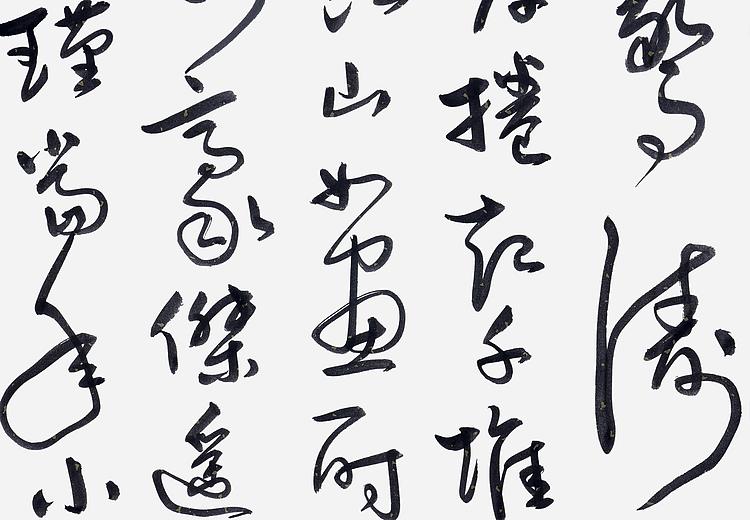 驚濤
捲起千堆
江山如畫一時
豪傑遙
瑾當年小